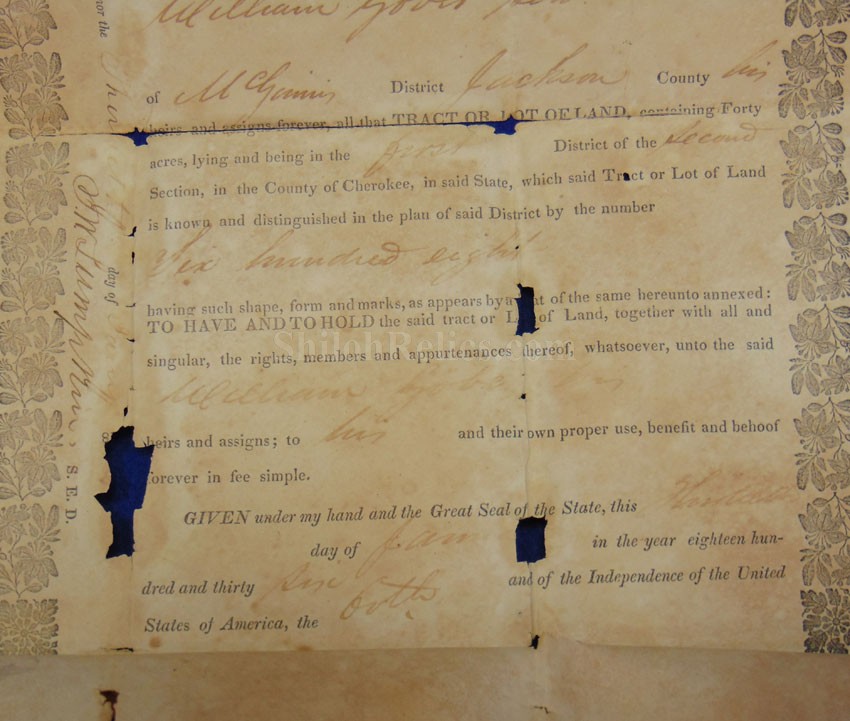 William
of McGinnis District Jackson County his
heirs and assigns forever, all that TRACT OR LOT OF LAND, containing Forty
acres, lying and being in the first District of the second
Section, in the County of Cherokee, in said State, which said Tract or Lot of Land
is known and distinguished in the plan of said District by the number
Six hundred eight
having such shape, form and marks, as appears by a of the same hereunto annexed:
TO HAVE AND TO HOLD the said tract or of Land, together with all and
singular, the rights, members and appurtenances thereof, whatsoever, unto the said
William
heirs and assigns; to his and their own proper use, benefit and behoof
forever in fee simple.
GIVEN under my hand and the Great Seal of the State, this
day of in the year eighteen hun-
dred and thirty six and of the Independence of the United
States of America, the 60th
day of
S. E. D.
ShilohRelics.com